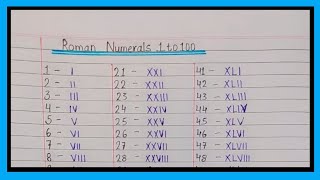 Roman Numerals 1 to 100
1 - I 21 - XXI 41 - XLI
2 - II 22 - XXII 42 - XLII
3 - III 23 - XXIII 43 - XLIII
4 - IV 24 - XXIV 44 - XLIV
5 - V 25 - XXV 45 - XLV
6 - VI 26 - XXVI 46 - XLVI
7 - VII 27 - XXVII 47 - XLVII
8 - VIII 28 - XXVIII 48 - XLVIII